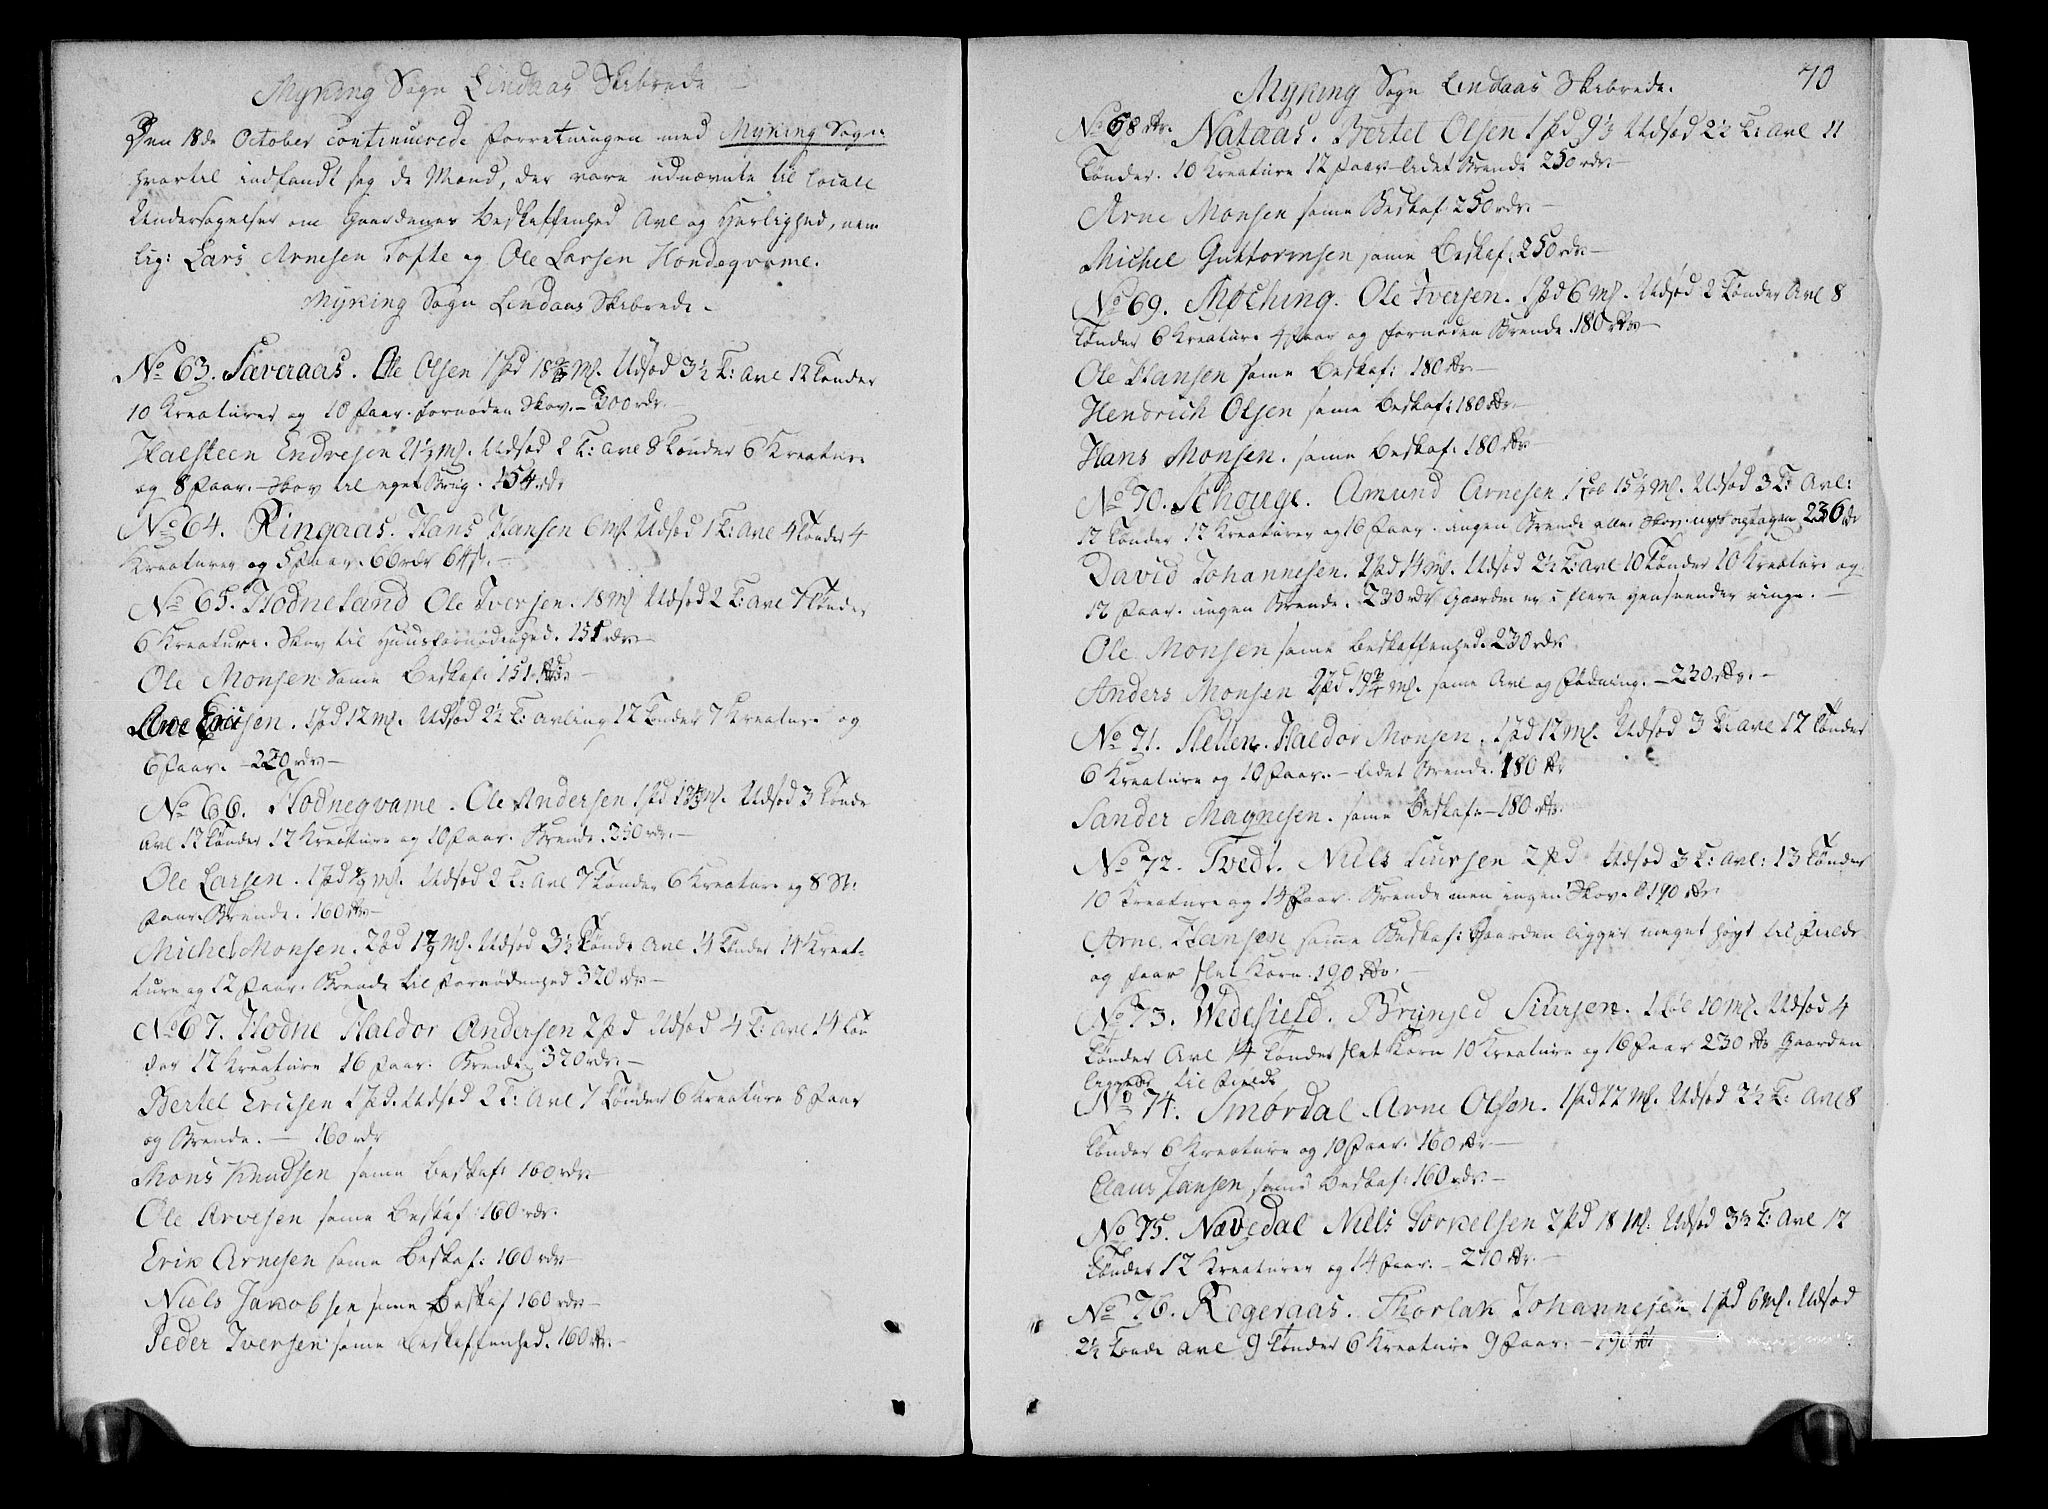 Myking Sogn Lindaas Skibrede –
Den 18de October continuerede forretningen med Myking Sogn
hvortil indfandt seg de Mænd, der vare udnævnte til locale
Undersøgelser om Gaardenes Beskaffenhed Avl og Herlighed, nem
lig: Lars Arnesen Tofte og Ole Larsen Hondeqvame.
Myking Sogn Lindaas Skibrede –
No 63. Sæveraas. Ole Olsen 1 pd 18 ml. Udsød 3½ T: Avl 12 Tønder
10 Kreaturer og 10 Faar. fornøden Skov. – 300 rdr.
Halsteen Endresen 21½ ml. Udsød 2 T: Avl 8 Tønder 6 Kreature
og 8 Faar. – Skov til eget Brug. 154 rdr
No 64. Ringaas. Hans Hansen 6 ml. Udsød 1 T: Avl 4 Tønder 4
Kreaturer og 5 Faar. 60 rdr 64 s. –
No 65. Hodneland Ole Iversen. 18 ml Udsød 2 T: Avl 7 Tønder
6 Kreature. Skov til Huusfornødenhed. 151 rdr –
Ole Monsen samme Beskaf: 151 rdr. –
Arne Ericsen. 1 pd 12 ml. Udsød 2½ T: Avling 12 Tønder 7 Kreature og
6 Faar. – 220 rdr –
No 66. Hodneqvame. Ole Andersen 1 pd 13 ml. Udsød 3 Tønde
Avl 12 Tønder 12 Kreature og 10 Faar. Brende. 350 rdr. –
Ole Larsen. 1 pd ml. Udsød 2 T: Avl 7 Tønder 6 Kreature og 8 St:
Faar. Brende. 160 rdr –
Michel Monsen. 2 pd ml. Udsød 3½ Tønde Avl 14 Tønder 14 Kreat-
ture og 12 Faar. Brende til Fornødenhed 320 rdr –
No 67. Hodne Haldor Andersen 2 pd Udsød 4 T: Avl 14 Tøn
der 12 Kreature 16 Faar. Brende 320 rdr. –
Bertel Ericsen 1 pd. Udsød 2 T: Avl 7 Tønder 6 Kreature 8 Faar
og Brende. – 160 rdr
Mons Knudsen samme Beskaf: 160 rdr –
Ole Arvesen samme Beskaf: 160 rdr.
Erik Arnesen samme Beskaf: 160 rdr –
Niels Jakobsen samme Beskaf 160 rdr –
Peder Iversen samme Beskaffenhed. 160 rdr. –
Myking Sogn Lindaas Skibrede. 70
No 68. Nataas. Bertel Olsen 1 pd 9⅓ Udsød 2½ T: Avl 11
Tønder. 10 Kreature 12 Faar – lidet Brende 250 rdr –
Arne Monsen samme Beskaf: 250 rdr. –
Michel Guttormsen samme Beskaf: 250 rdr –
No 69. Møching. Ole Iversen. 1 pd 6 ml. Udsød 2 Tønder Avl 8
Tønder 6 Kreature 4 Faar og fornøden Brende. 180 rdr –
Ole Hansen samme Beskaf: 180 rdr –
Hendrich Olsen samme Beskaf: 180 rdr. –
Hans Monsen. samme Beskaf. 180 rdr –
No 70. Schouge. Amund Arnesen 1 Løb 15¼ ml. Udsød 3 T: Avl:
12 Tønder 12 Kreaturer og 16 Faar. ingen Brende eller Skov. nye optagen 236 rdr
David Johannesen. 2 pd 14 ml. Udsød 2½ T: Avl 10 Tønder 10 Kreature og
12 Faar. ingen Brende. 230 rdr Gaarden er i flere henseender ringe. –
Ole Monsen samme Beskaffenhed. 230 rdr
Anders Monsen 2 pd ml. samme Avl og Fødning. – 230 rdr. –
No 71. Hellen. Haldor Monsen. 1 pd 12 ml. Udsød 3 T: Avl 12 Tønder
6 Kreature og 10 Faar. – lidet Brende. 180 rdr
Sander Magnesen. samme Beskaf: – 180 rdr.
No 72. Tvedt. Niels Siursen 2 pd Udsød 3 T: Avl: 13 Tønder
10 Kreature og 14 Faar. Brende men ingen Skov. 190 rdr.
Arne Hansen samme Beskaf: Gaarden ligger meget høyt til Fields
og faar slet Korn. 190 rdr. –
No 73. Wedesield. Brynjed Siursen. 1 Løb 10 ml. Udsød 4
Tønder Avl 14 Tønder slet Korn 10 Kreature og 16 Faar 230 rdr Gaarden
ligger til Fields
No 74. Smørdal Arne Olsen. 1 pd 12 ml. Udsød 2½ T: Avl 8
Tønder 6 Kreature og 10 Faar. 160 rdr. –
Claus Jansen samme Beskaf: 160 rdr. –
No 75. Nævedal Niels Torkelsen 2 pd 18 ml. Udsød 3½ T: Avl 12
Tønder 12 Kreaturer og 14 Faar. – 270 rdr. –
No 76. Rogeraas. Thorlak Johannesen 1 pd 6 ml. Udsød
2½ Tønde Avl 9 Tønder 6 Kreature 9 Faar. – 190 rdr